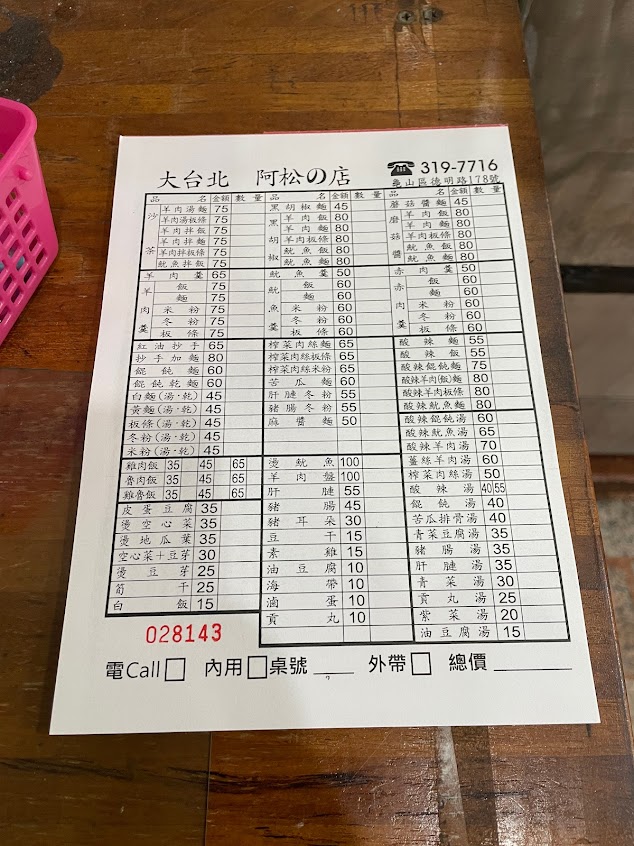 大台北 阿松の店
☎ 319-7716
龜山區德明路178號
品名 金額 數量
沙茶
羊肉湯麵 75
羊肉湯板條 75
羊肉拌飯 75
羊肉拌麵 75
羊肉拌板條 75
魷魚拌飯 75
羊肉羹 65
羊肉羹
飯 75
麵 75
米粉 75
冬粉 75
板條 75
紅油抄手 65
抄手加麵 80
餛飩麵 60
餛飩乾麵 60
白麵(湯·乾) 45
黃麵(湯·乾) 45
板條(湯·乾) 45
冬粉(湯·乾) 45
米粉(湯·乾) 45
雞肉飯 35 45 65
魯肉飯 35 45 65
雞魯飯 35 45 65
皮蛋豆腐 35
燙空心菜 35
燙地瓜葉 35
空心菜+豆芽 30
燙豆芽 25
筍干 25
白飯 15
028143
品名 金額 數量
黑胡椒麵 45
黑胡椒
羊肉飯 80
羊肉麵 80
羊肉板條 80
魷魚飯 80
魷魚麵 80
魷魚羹 50
魷魚羹
飯 60
麵 60
米粉 60
冬粉 60
板條 60
榨菜肉絲麵 65
榨菜肉絲板條 65
榨菜肉絲米粉 65
苦瓜麵 60
肝腱冬粉 55
豬腸冬粉 55
麻醬麵 50
燙魷魚 100
羊肉盤 100
肝腱 55
豬腸 45
豬耳朵 30
豆干 15
素雞 15
油豆腐 10
海帶 10
滷蛋 10
貢丸 10
品名 金額 數量
蘑菇醬麵 45
蘑菇醬
羊肉飯 80
羊肉麵 80
羊肉板條 80
魷魚飯 80
魷魚麵 80
赤肉羹 50
赤肉羹
飯 60
麵 60
米粉 60
冬粉 60
板條 60
酸辣麵 55
酸辣飯 55
酸辣餛飩麵 75
酸辣羊肉(飯)麵 80
酸辣羊肉板條 80
酸辣魷魚麵 80
酸辣餛飩湯 60
酸辣魷魚湯 65
酸辣羊肉湯 70
薑絲羊肉湯 60
榨菜肉絲湯 50
酸辣湯 40 55
餛飩湯 40
苦瓜排骨湯 40
青菜豆腐湯 35
豬腸湯 35
肝腱湯 35
青菜湯 30
貢丸湯 25
紫菜湯 20
油豆腐湯 15
電Call□ 內用□桌號____ 外帶□ 總價________